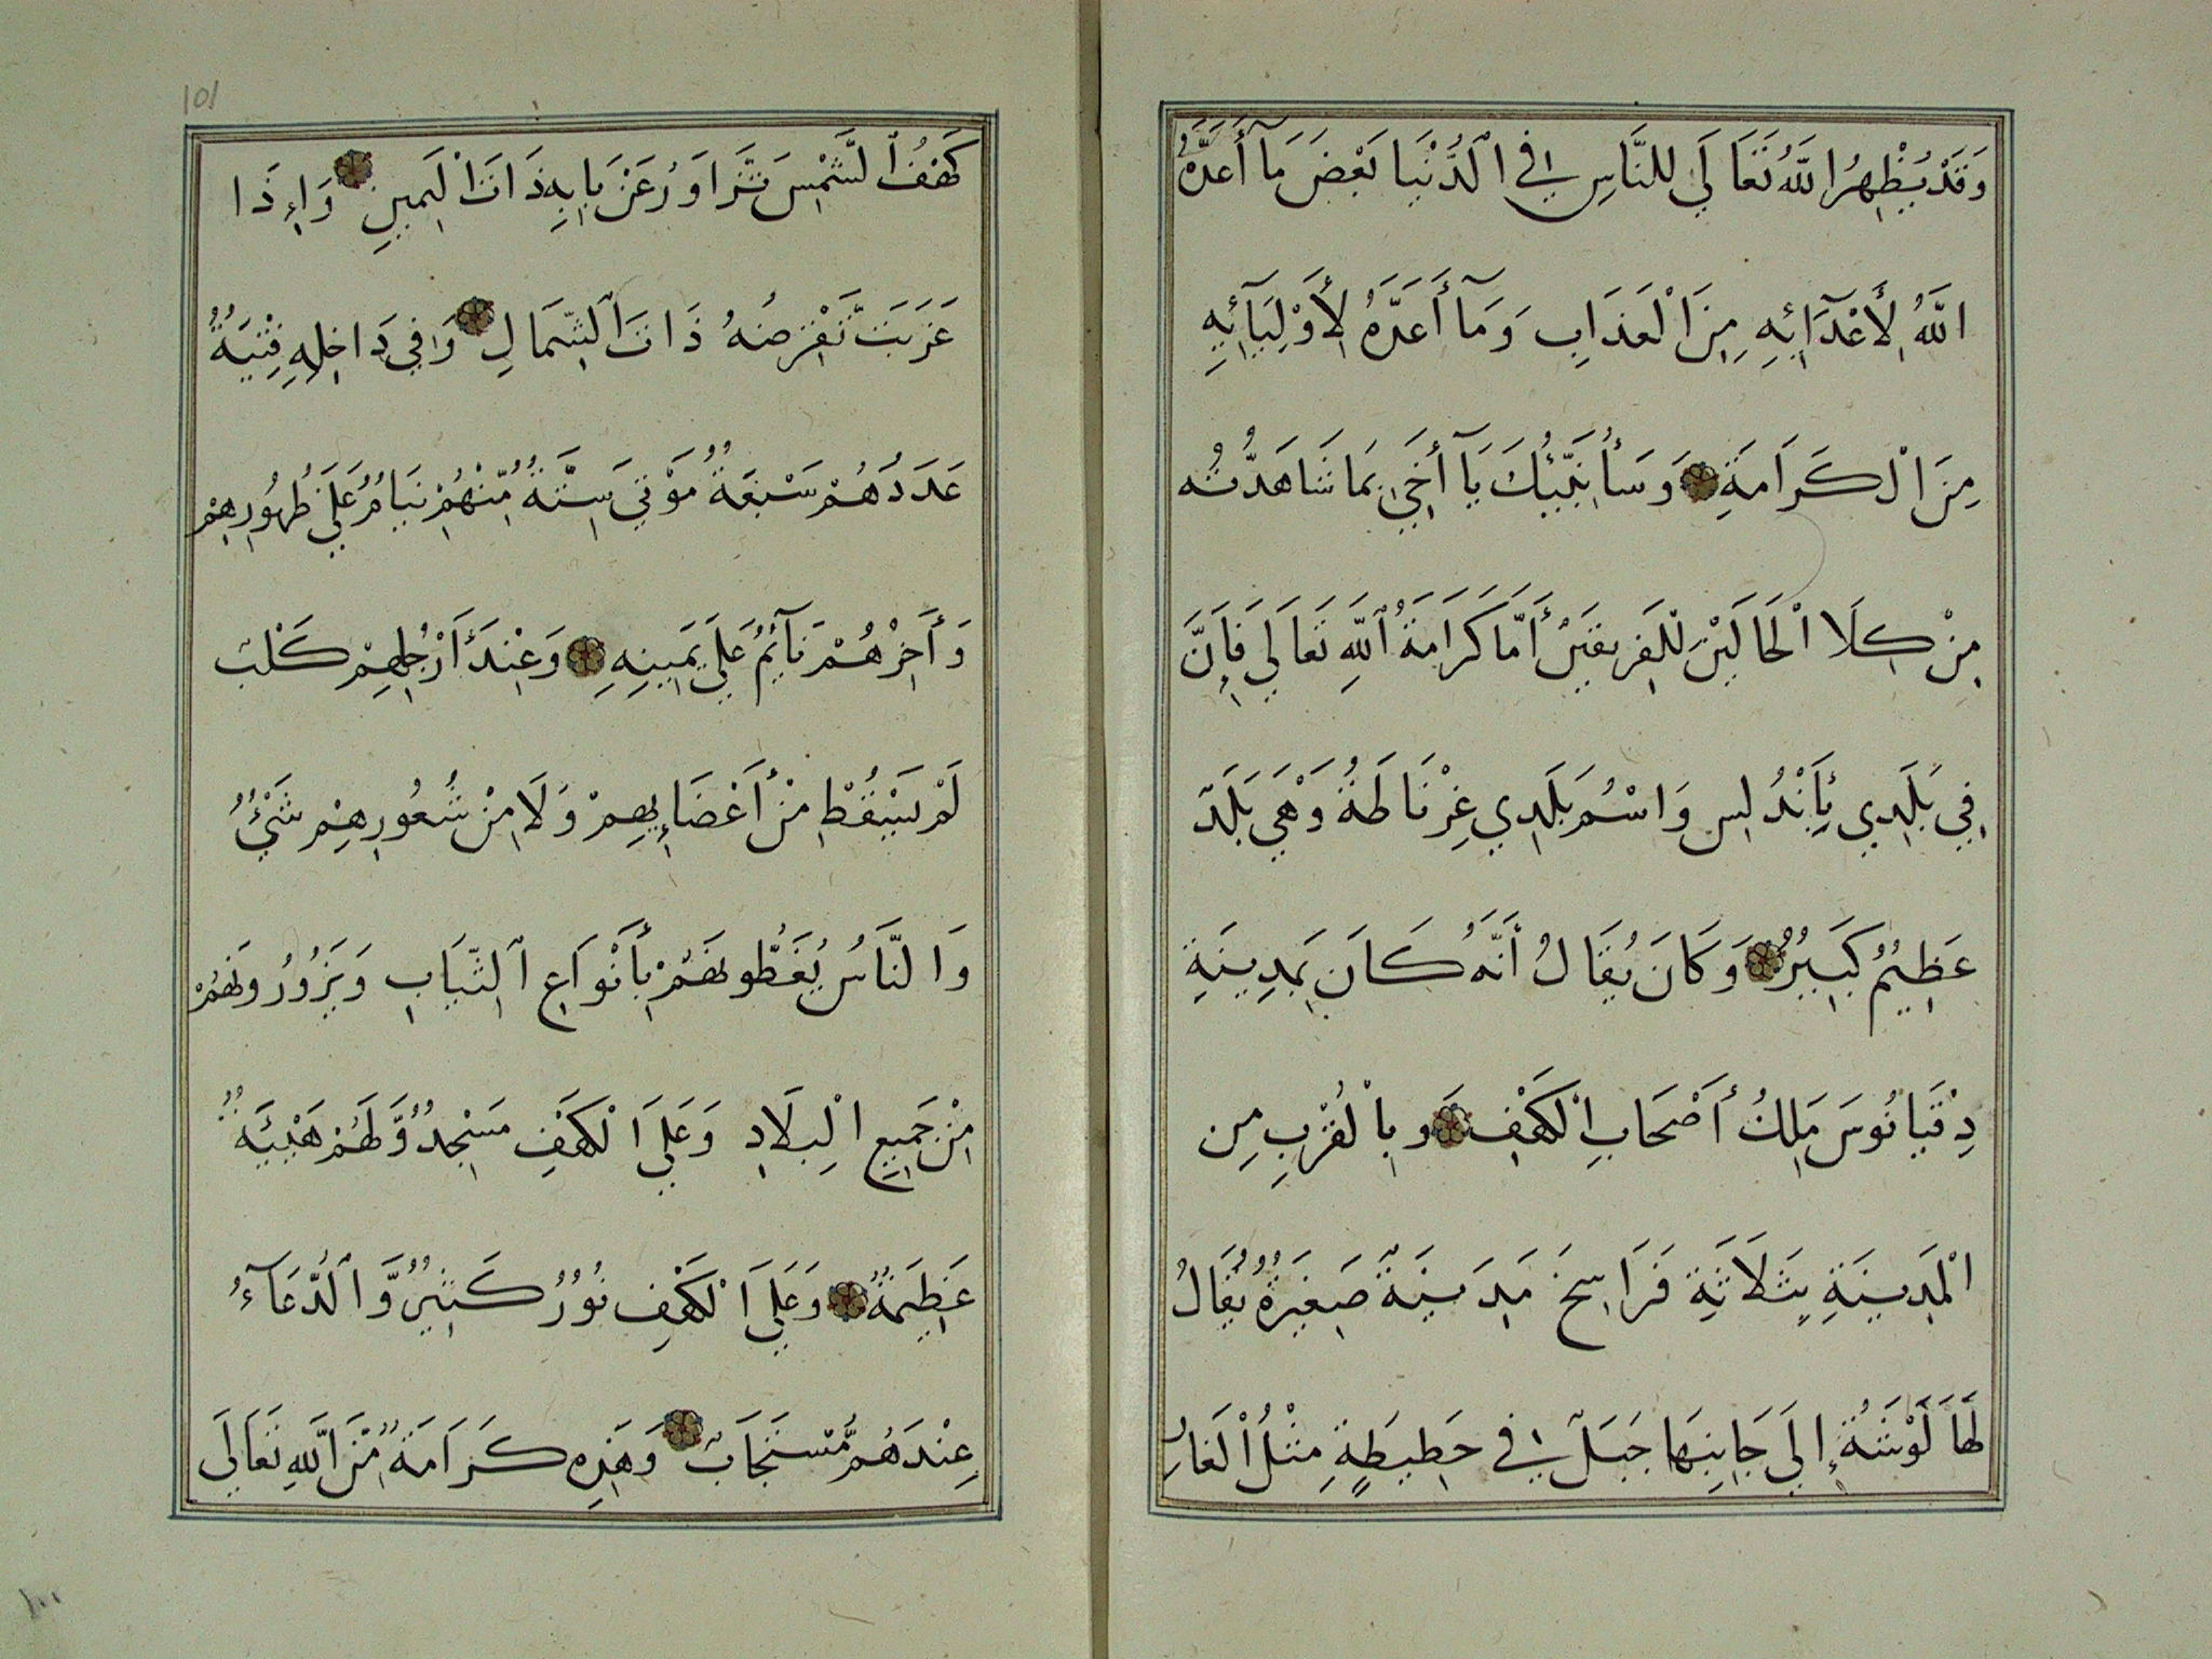 وَقَدْ يُظْهِرُ اللَّهُ تَعَالَى لِلنَّاسِ فِي الدُّنْيَا بَعْضَ مَآ أَعَدَّهُ
اللَّهُ لِأَعْدَآئِهِ مِنَ الْعَذَابِ وَمَآ أَعَدَّهُ لِأَوْلِيَآئِهِ
مِنَ الْكَرَامَةِ وَسَأُنَبِّئُكَ يَآ أَخِي بِمَا شَاهَدْتُّه
مِنْ كِلَا الْحَالَيْنِ لِلْفَرِيقَيْنِ أَمَّا كَرَامَةُ اللَّهِ تَعَالَى فَإِنَّ
فِي بَلَدِي بِأَنْدُلِس وَاسْمُ بَلَدِي غِرْنَاطَةُ وَهِيَ بَلَدٌ
عَظِيمٌ كَبِيرٌ وَكَانَ يُقَالُ أَنَّهُ كَانَ بِمَدِينَةِ
دِقْيَانُوسَ مَلِكُ أَصْحَابِ الْكَهْفِ وَبِالْقُرْبِ مِن
الْمَدِينَةِ بِثَلَاثَةِ فَرَاسِخَ مَدِينَةٌ صَغِيرَةٌ يُقَالُ
لَهَا لَوْشَةُ إِلَى جَانِبِهَا جَبَلٌ فِي حَطِيطَةٍ مِثْلُ الْغَارِ
101
كَهْفُ الشَّمْسِ تَّزَاوَرُ عَنْ بَابِهِ ذَاتَ الْيَمِينِ وَإِذَا
غَرَبَتْ تَّقْرِضُهُ ذَاتَ الشِّمَالِ وَفِي دَاخِلِهِ فِتْيَةٌ
عَدَدُهُمْ سَبْعَةٌ مَوْتَى سِتَّةٌ مِّنْهُمْ نِيَامٌ عَلَى ظُهُورِهِمْ
وَأَخِرُهُمْ نَآئِمٌ عَلَى يَمِينِهِ وَعِنْدَ أَرْجُلِهِمْ كَلْبٌ
لَمْ يَسْقُطْ مِنْ أَعْضَائِهِمْ وَلَا مِنْ شُعُورِهِمْ شَيْءٌ
وَالنَّاسُ يُغَطُّونَهُمْ بِأَنْوَاعِ الثِّيَابِ وَيَزُورُونَهُمْ
مِنْ جَمِيعِ الْبِلَادِ وَعَلَى الْكَهْفِ مَسْجِدٌ وَّلَهُمْ هَيْئَةٌ
عَظِيمَةٌ وَعَلَى الْكَهْفِ نُورٌ كَثِيرٌ وَّالدُّعَآءُ
عِنْدَهُمْ مُّسْتَجَابٌ وَهَذِهِ كَرَامَةٌ مِّنَ اللَّهِ تَعَالَى
١٠٠